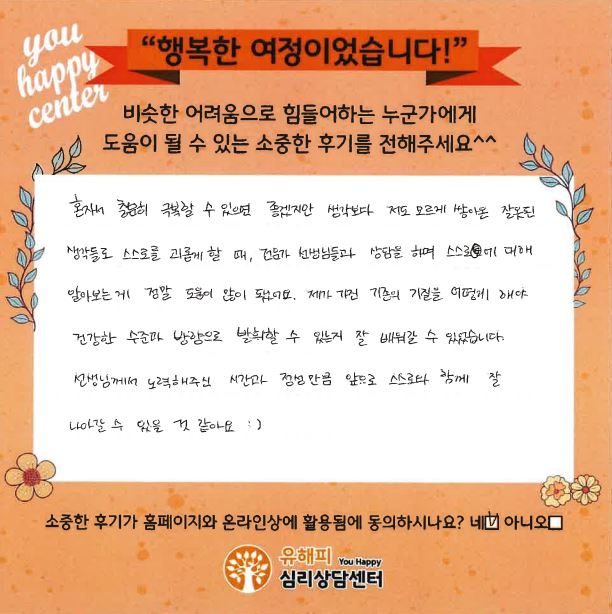 you
happy
center
“행복한 여정이었습니다!”
비슷한 어려움으로 힘들어하는 누군가에게
도움이 될 수 있는 소중한 후기를 전해주세요^^
혼자서 극복할 수 있으면 좋겠지만 생각보다 저도 모르게 쌓아온 잘못된
생각들로 스스로를 괴롭게 할 때, 전문가 선생님들과 상담을 하며 스스로에 대해
알아보는게 정말 도움이 많이 됐어요. 제가 가진 기존의 기질을 어떻게 해야
건강한 수준과 방향으로 발휘할 수 있는지 잘 배워갈 수 있었습니다.
선생님께서 노력해주신 시간과 정성만큼 앞으로 스스로와 함께 잘
나아갈 수 있을 것 같아요 :)
소중한 후기가 홈페이지와 온라인상에 활용됨에 동의하시나요? 네☑ 아니오☐
유해피 You Happy
심리상담센터